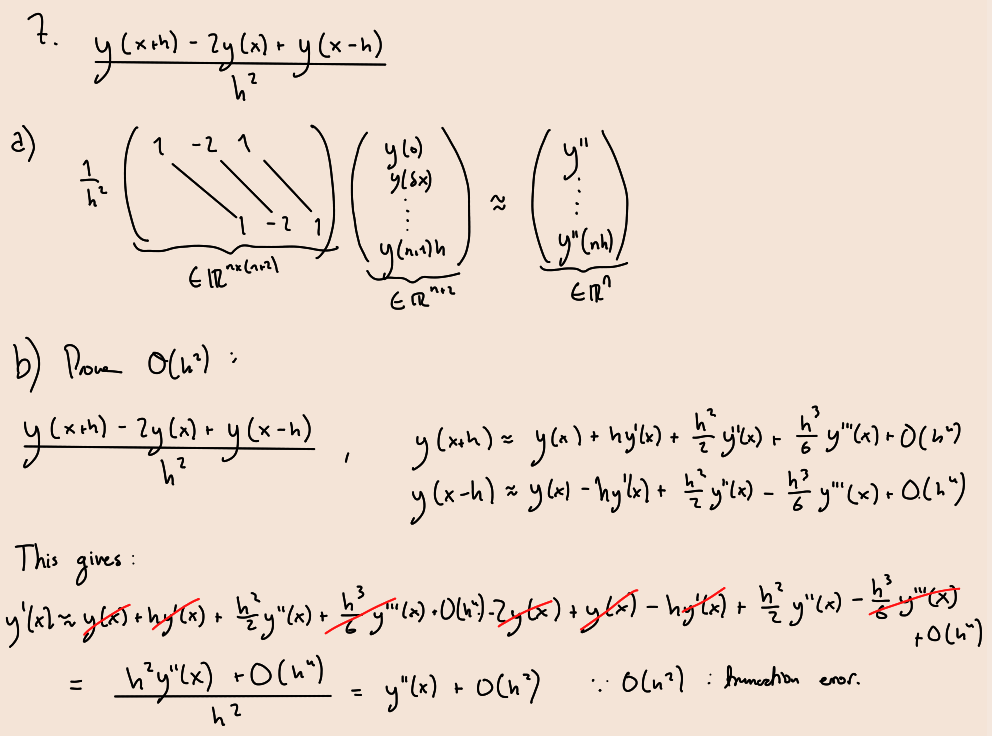 7. \frac{y(x+h) - 2y(x) + y(x-h)}{h^2}
a) \frac{1}{h^2} \underbrace{\begin{pmatrix} 1 & -2 & 1 & & \\ & \diagdown & \diagdown & \diagdown & \\ & & 1 & -2 & 1 \end{pmatrix}}_{\in \mathbb{R}^{n \times (n+2)}} \underbrace{\begin{pmatrix} y(0) \\ y(\delta x) \\ \vdots \\ y(n+1)h \end{pmatrix}}_{\in \mathbb{R}^{n+2}} \approx \underbrace{\begin{pmatrix} y'' \\ \vdots \\ y''(nh) \end{pmatrix}}_{\in \mathbb{R}^n}
b) Prove O(h^2) :
\frac{y(x+h) - 2y(x) + y(x-h)}{h^2} , y(x+h) ≈ y(x) + hy'(x) + \frac{h^2}{2} y''(x) + \frac{h^3}{6} y'''(x) + O(h^4)
y(x-h) ≈ y(x) - hy'(x) + \frac{h^2}{2} y''(x) - \frac{h^3}{6} y'''(x) + O(h^4)
This gives :
y'(x) ≈ y(x) + hy'(x) + \frac{h^2}{2} y''(x) + \frac{h^3}{6} y'''(x) + O(h^4) - 2y(x) + y(x) - hy'(x) + \frac{h^2}{2} y''(x) - \frac{h^3}{6} y'''(x)
+ O(h^4)
= \frac{h^2 y''(x) + O(h^4)}{h^2} = y''(x) + O(h^2) ∵ O(h^2) : truncation error.